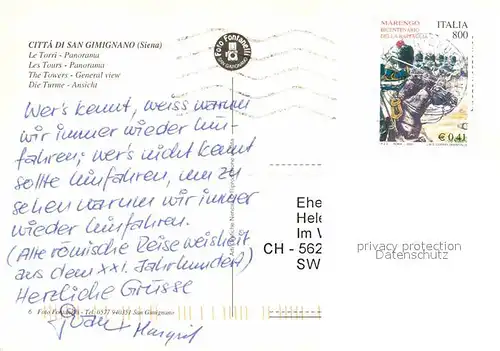 CITTÀ DI SAN GIMIGNANO (Siena)
Le Torri - Panorama
Les Tours - Panorama
The Towers - General view
Die Turme - Ansicht
Foto Fontanelli
SAN GIMIGNANO
MARENGO
BICENTENARIO
DELLA BATTAGLIA
ITALIA
800
€ 0,41
Wer's kennt, weiss warum
wir immer wieder hin-
fahren; wer's nicht kennt
sollte hinfahren, um zu
sehen warum wir immer
wieder hinfahren.
(Alte römische Reiseweisheit
aus dem XXI. Jahrhundert)
Herzliche Grüsse
Margrit
6 Foto Fontanelli - Tel. 0577 940351 San Gimignano
Ehe
Hele
Im W
CH - 562
SW
privacy protection
Datenschutz